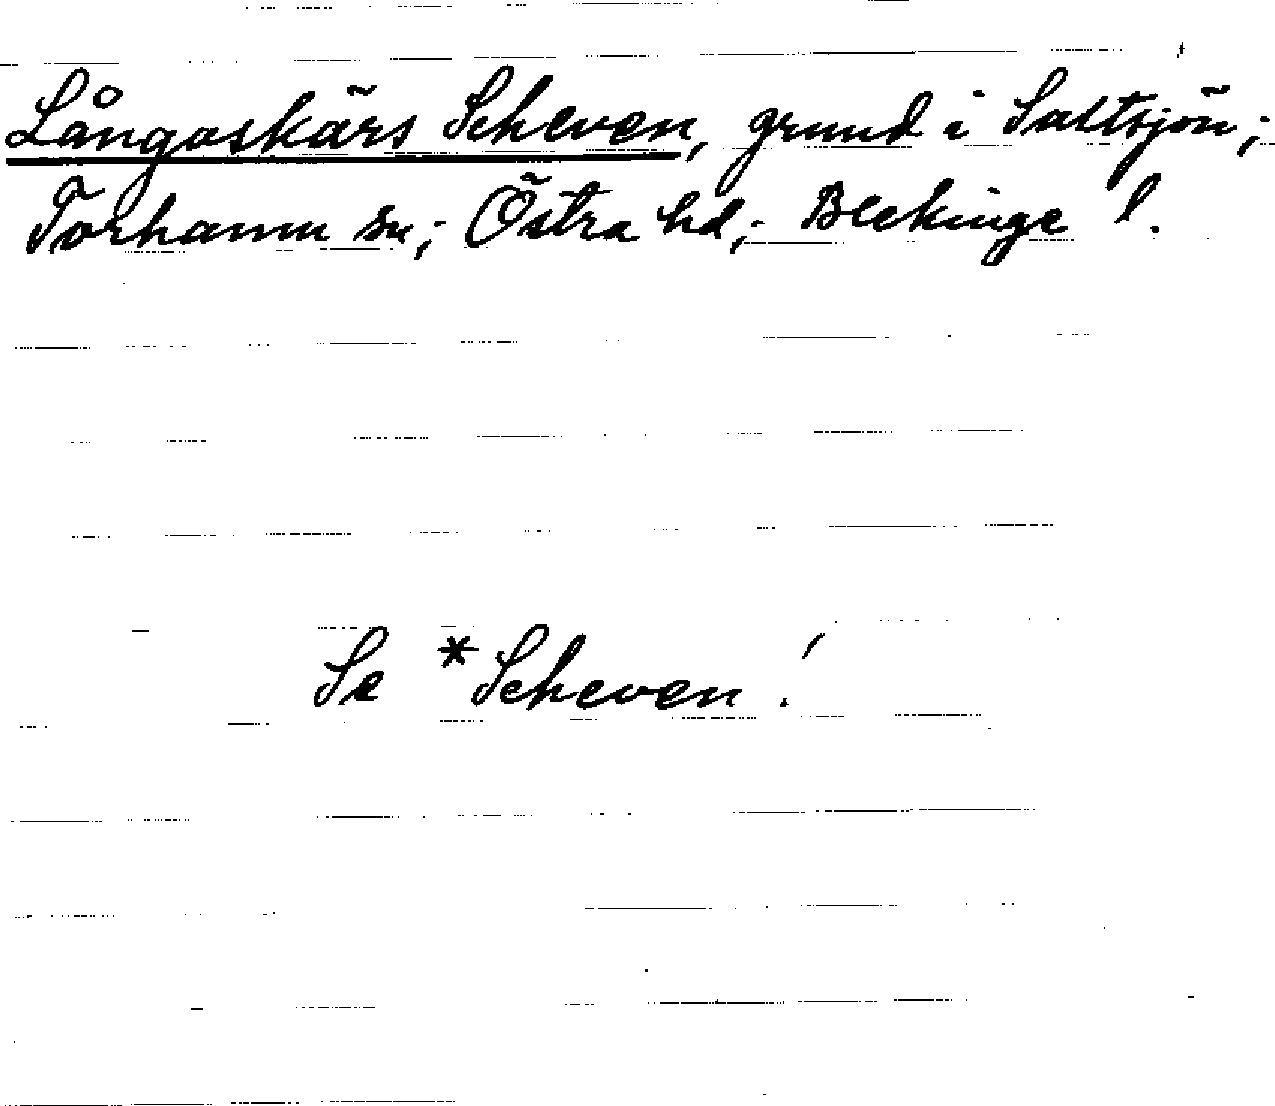 Långaskärs Scheven, grund i Saltsjön;
Torhamn sn; Östra hd; Blekinge l.
Se *Scheven!